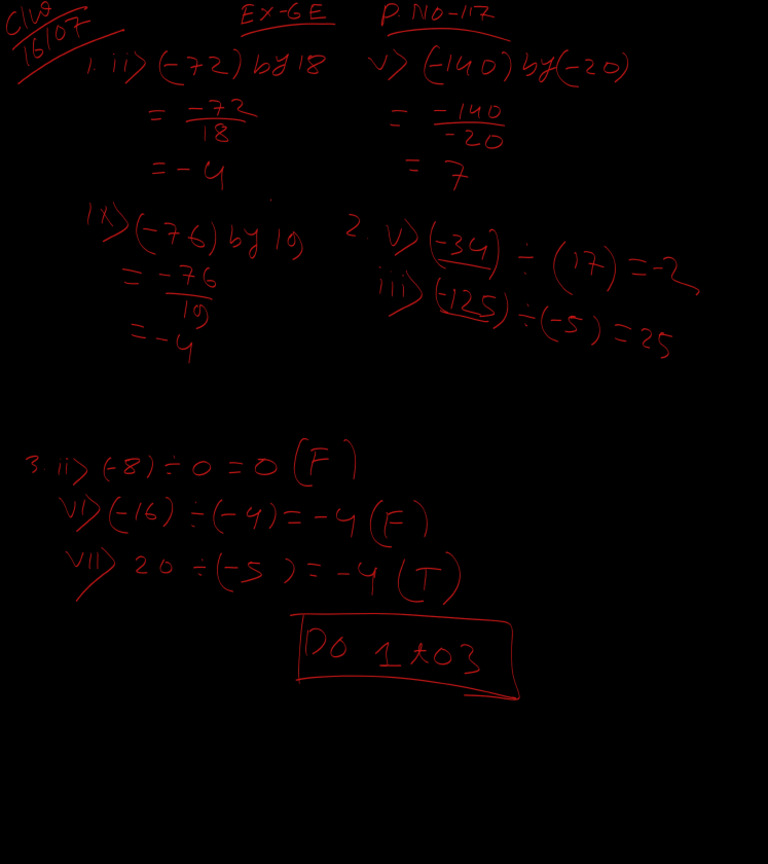 C/W
16/07
EX-6E P.NO-117
1. ii> (-72) by 18
= -72/18
= -4
v> (-140) by (-20)
= -140/-20
= 7
ix> (-76) by 19
= -76/19
= -4
2. v> (-34) ÷ (17) = -2
iii> (-125) ÷ (-5) = 25
3. ii> (-8) ÷ 0 = 0 (F)
vi> (-16) ÷ (-4) = -4 (F)
vii> 20 ÷ (-5) = -4 (T)
DO 1 to 3